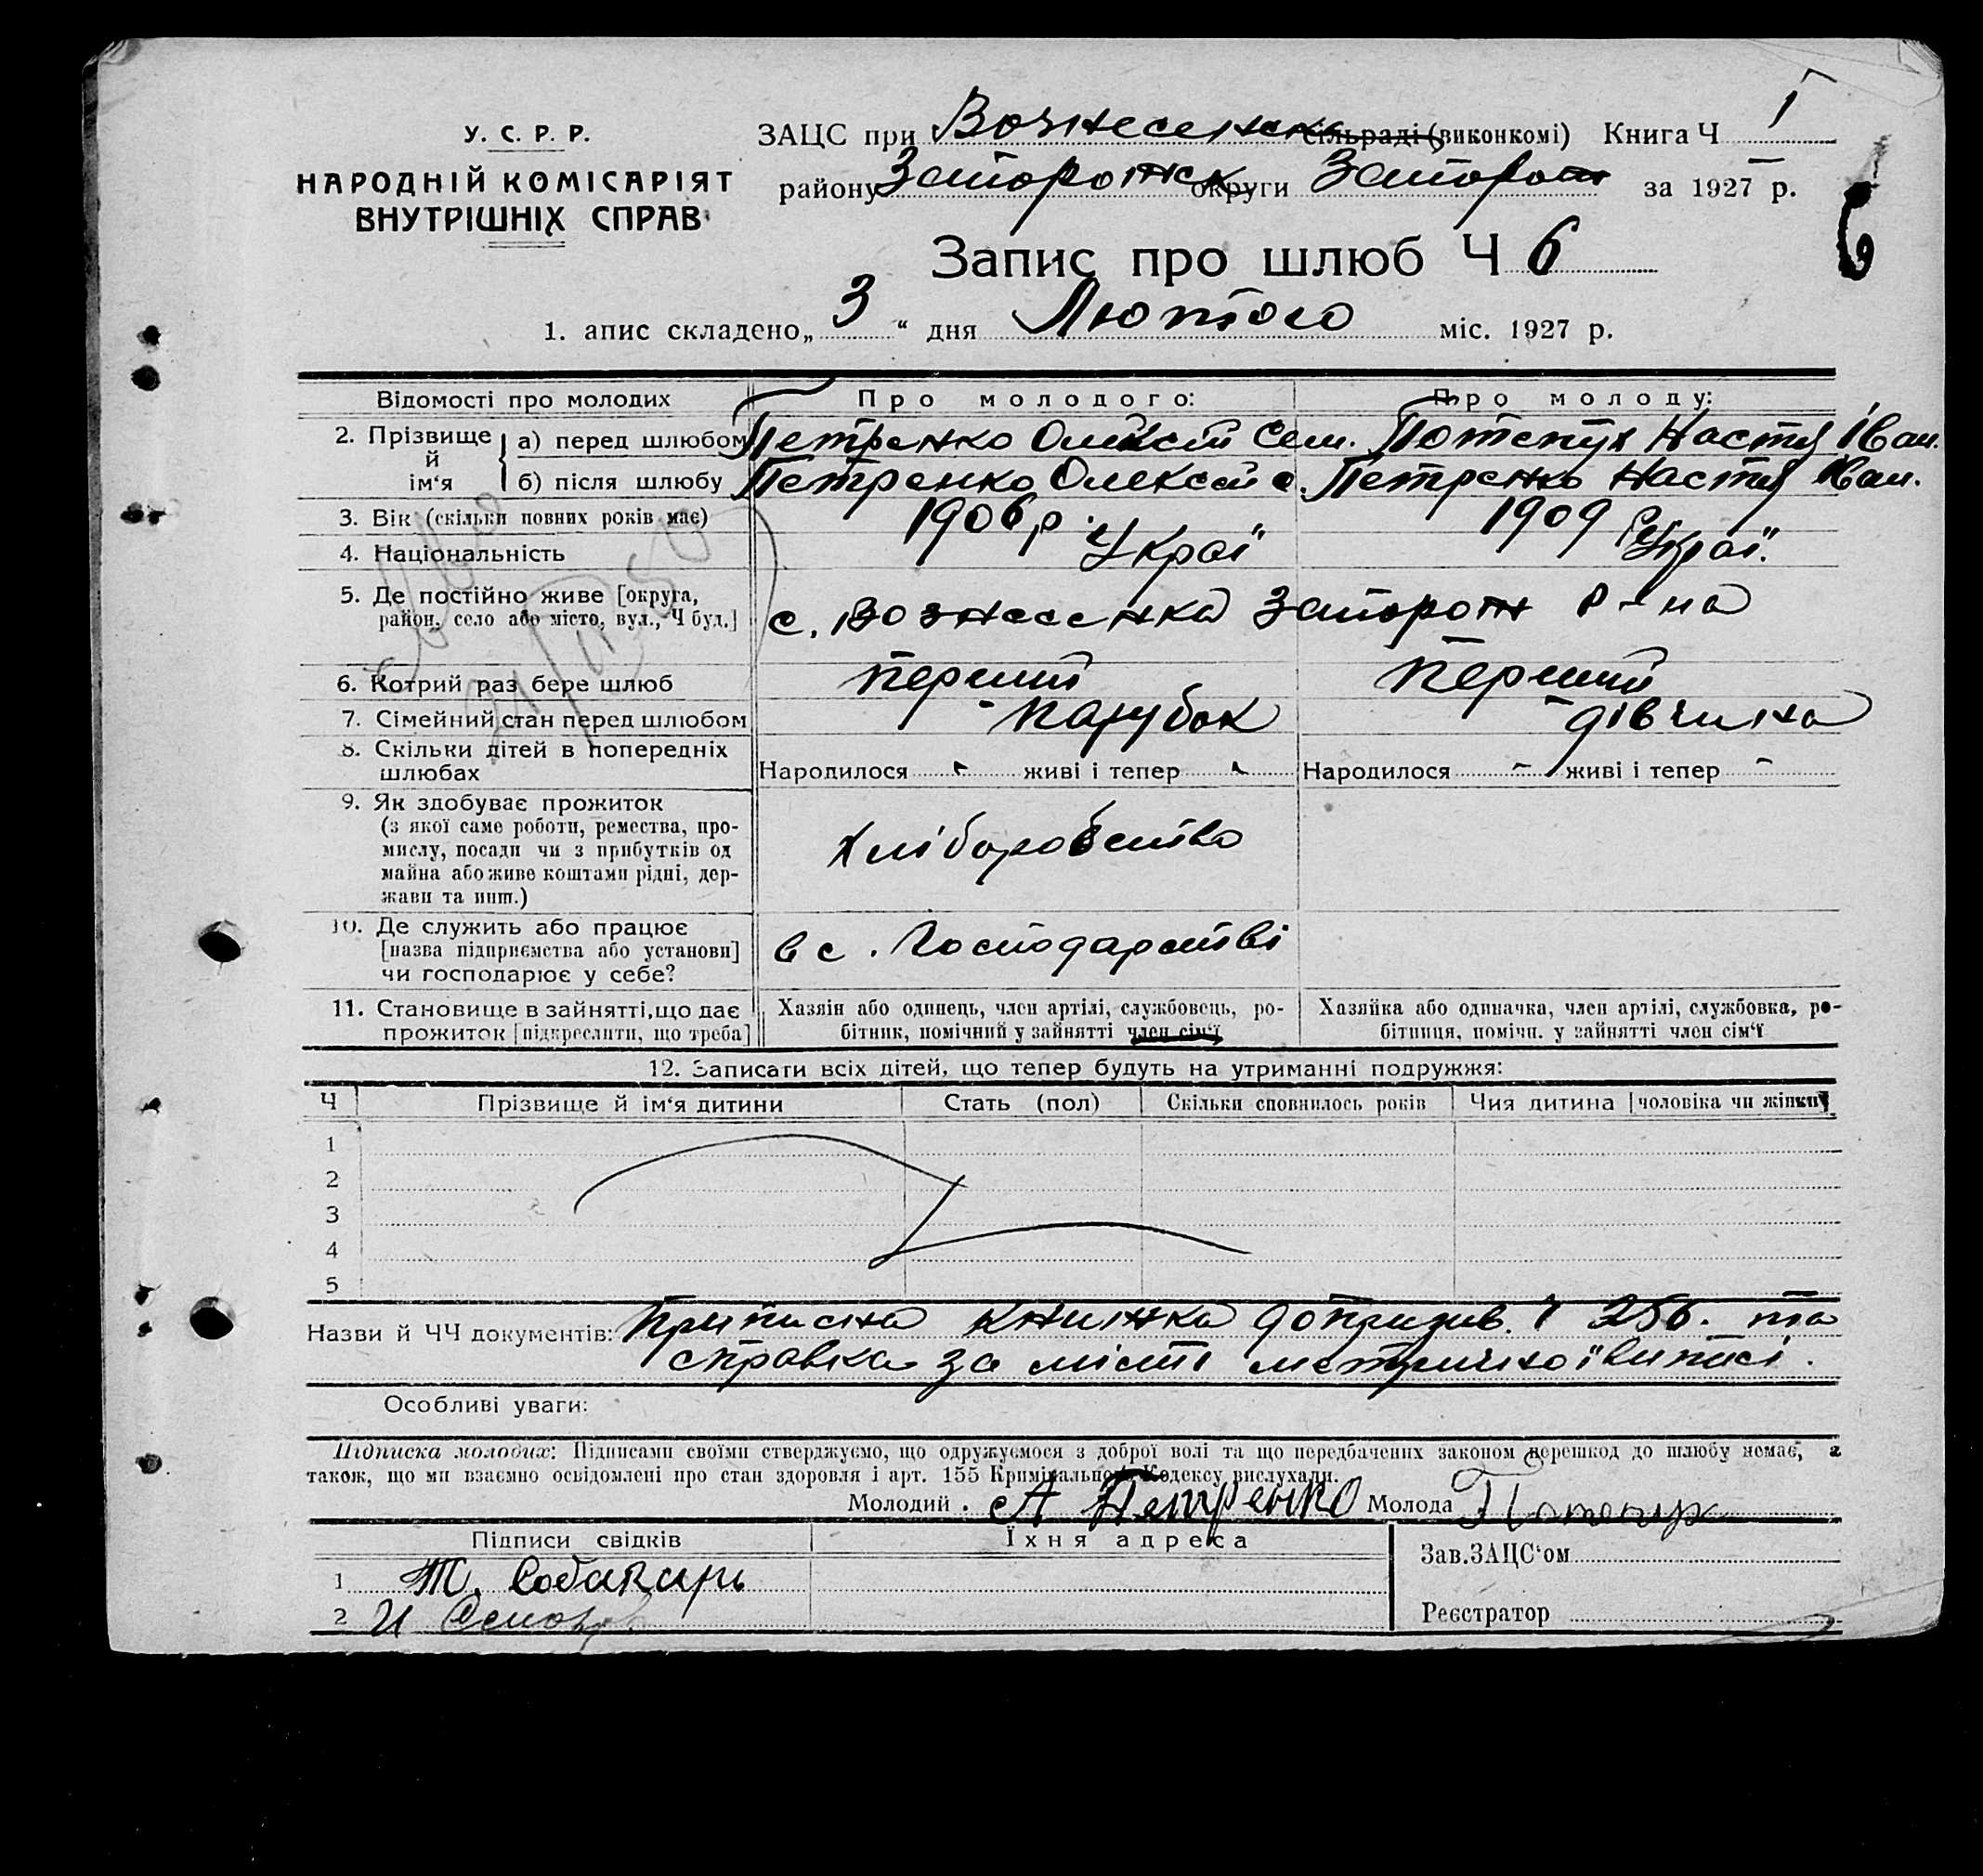 У. С. Р. Р.
НАРОДНІЙ КОМІСАРІЯТ
ВНУТРІШНІХ СПРАВ
ЗАЦС при Вознесенск сільраді (виконкомі) Книга Ч 1
району Запорожск округи Запорож за 1927 р.
6
Запис про шлюб Ч 6
1. апис складено „ 3 “ дня Лютого міс. 1927 р.
Відомості про молодих
Про молодого:
Про молоду:
2. Прізвище й ім‘я
а) перед шлюбом
Петренко Олексій Сем.
Потепух Настя Іван.
б) після шлюбу
Петренко Олексій С.
Петренко Настя Іван.
3. Вік (скільки повних років має)
1906 р.
1909 р.
4. Національність
Украї
Украї.
5. Де постійно живе [округа,
район, село або місто, вул., Ч буд.]
с. Вознесенка Запорож р-на
6. Котрий раз бере шлюб
перший
перший
7. Сімейний стан перед шлюбом
парубок
дівчина
8. Скільки дітей в попередніх
шлюбах
Народилося - живі і тепер -
Народилося - живі і тепер -
9. Як здобуває прожиток
(з якої саме роботи, ремества, про-
мислу, посади чи з прибутків од
майна або живе коштами рідні, дер-
жави та инш.)
Хліборобство
10. Де служить або працює
[назва підприємства або установи]
чи господарює у себе?
в с. Господарстві
11. Становище в зайнятті, що дає
прожиток [підкреслити, що треба]
Хазяїн або одинець, член артілі, службовець, ро-
бітник, помічний у зайнятті член сім‘ї
Хазяйка або одиначка, член артілі, службовка, ро-
бітниця, помічн. у зайнятті член сім‘ї
12. Записати всіх дітей, що тепер будуть на утриманні подружжя:
Ч
Прізвище й ім‘я дитини
Стать (пол)
Скільки сповнилось років
Чия дитина [чоловіка чи жінки]
1
2
3
4
5
Назви й ЧЧ документів: Приписна книжка допризив. Ч 256. та
справка за місті метричної виписі.
Особливі уваги:
Підписка молодих: Підписами своїми стверджуємо, що одружуємося з доброї волі та що передбачених законом перешкод до шлюбу немає, а
також, що ми взаємно освідомлені про стан здоровля і арт. 155 Кримінального Кодексу вислухали.
Молодий. А Петренко Молода Потепух
Підписи свідків
Їхня адреса
1 Т. Собакарь
2 И
Зав. ЗАЦС‘ом
Реєстратор